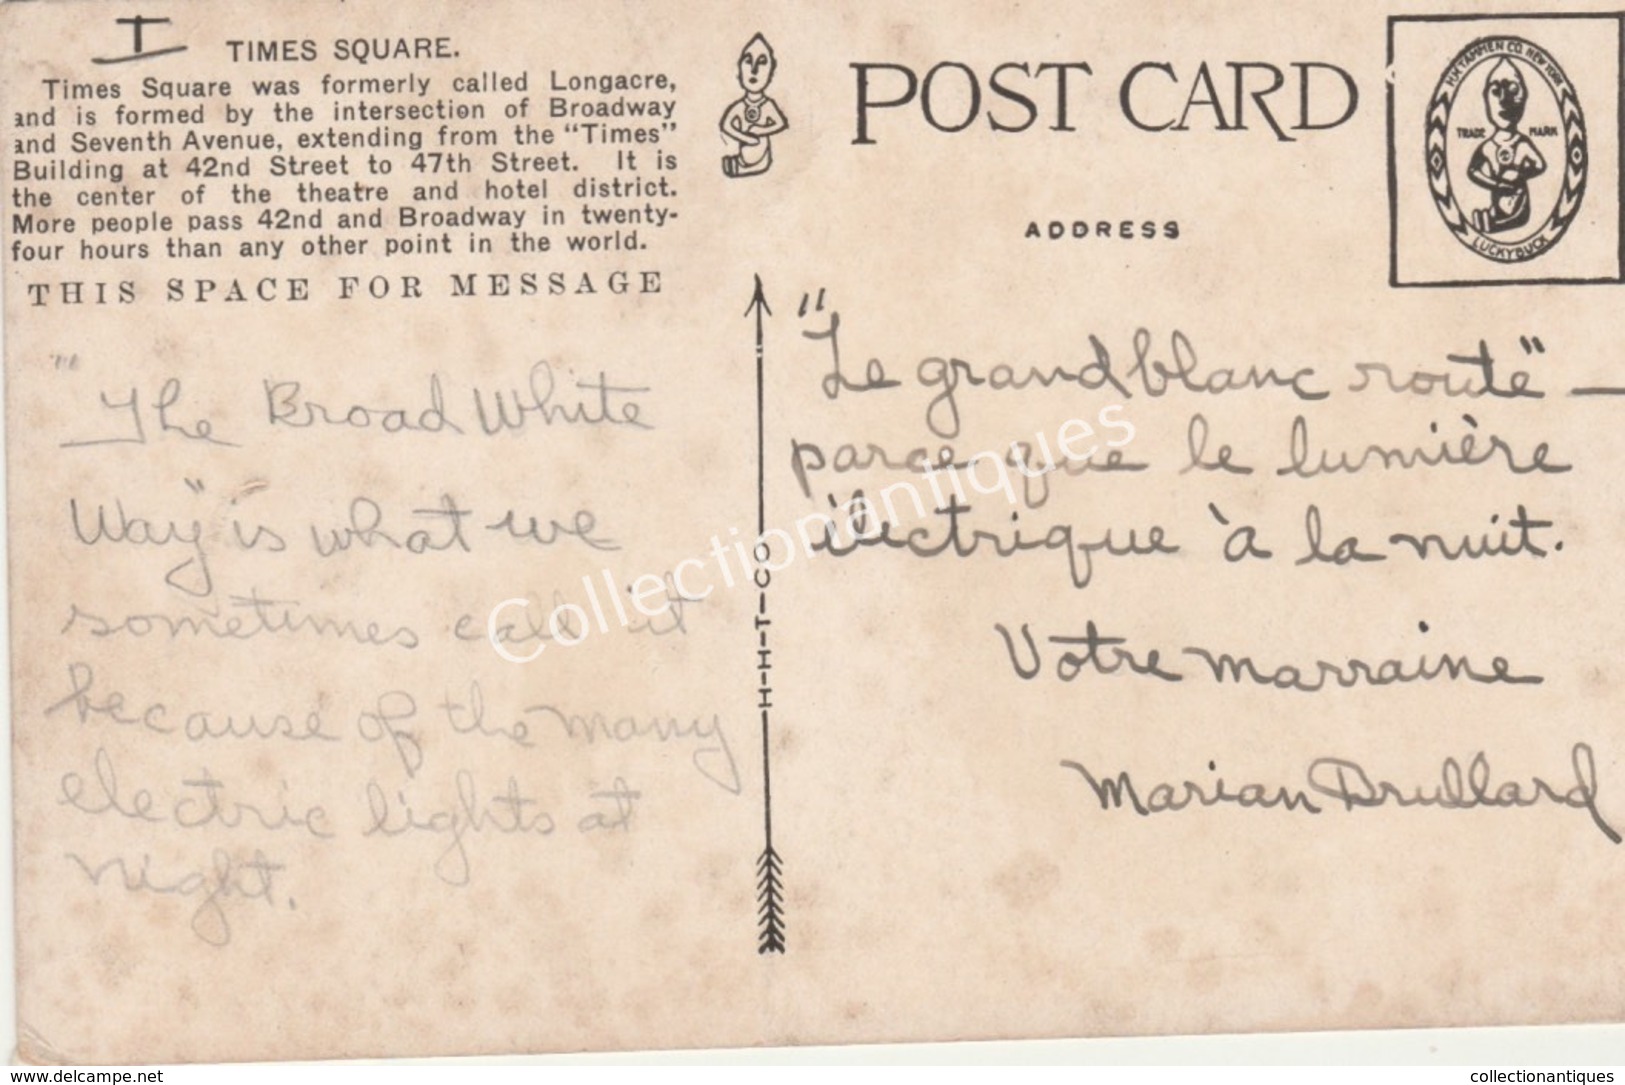 I
TIMES SQUARE.
Times Square was formerly called Longacre,
and is formed by the intersection of Broadway
and Seventh Avenue, extending from the "Times"
Building at 42nd Street to 47th Street. It is
the center of the theatre and hotel district.
More people pass 42nd and Broadway in twenty-
four hours than any other point in the world.
THIS SPACE FOR MESSAGE
"The Broad White
Way" is what we
sometimes call it
because of the many
electric lights at
night.
H-H-T-CO
POST CARD
ADDRESS
H.H. TAMMEN CO. NEW YORK
TRADE MARK
LUCKY BUCK
"Le grand blanc route" —
parce que le lumière
électrique à la nuit.
Votre marraine
Marian Brullard
Collectionantiques
www.delcampe.net
collectionantiques